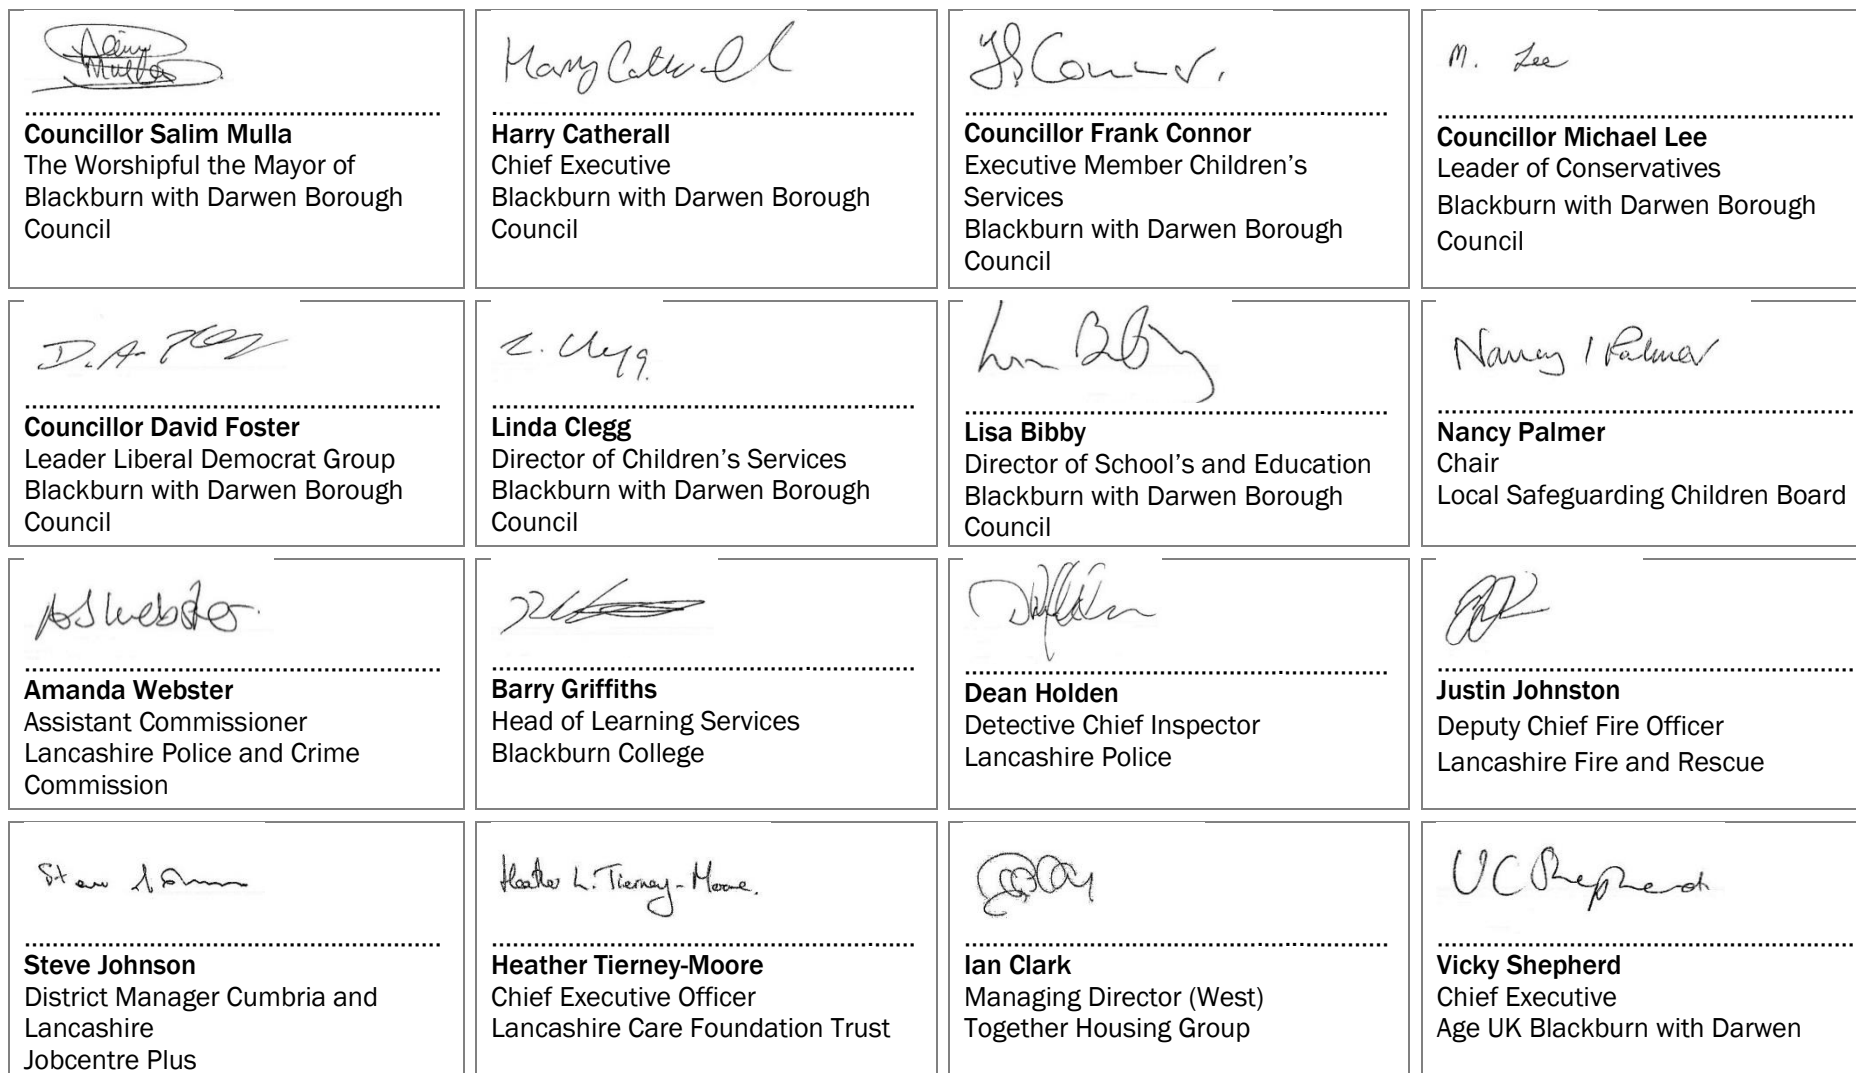 Salim
Mulla
Councillor Salim Mulla
The Worshipful the Mayor of
Blackburn with Darwen Borough
Council
Harry Catherall
Harry Catherall
Chief Executive
Blackburn with Darwen Borough
Council
Connor.
Councillor Frank Connor
Executive Member Children's
Services
Blackburn with Darwen Borough
Council
M. Lee
Councillor Michael Lee
Leader of Conservatives
Blackburn with Darwen Borough
Council
D. A.
Councillor David Foster
Leader Liberal Democrat Group
Blackburn with Darwen Borough
Council
L. Clegg.
Linda Clegg
Director of Children's Services
Blackburn with Darwen Borough
Council
Lisa Bibby
Lisa Bibby
Director of School's and Education
Blackburn with Darwen Borough
Council
Nancy I Palmer
Nancy Palmer
Chair
Local Safeguarding Children Board
Webster.
Amanda Webster
Assistant Commissioner
Lancashire Police and Crime
Commission
Barry Griffiths
Head of Learning Services
Blackburn College
Dean Holden
Detective Chief Inspector
Lancashire Police
Justin Johnston
Deputy Chief Fire Officer
Lancashire Fire and Rescue
Steve Johnson
District Manager Cumbria and
Lancashire
Jobcentre Plus
Heather L. Tierney-Moore.
Heather Tierney-Moore
Chief Executive Officer
Lancashire Care Foundation Trust
Ian Clark
Managing Director (West)
Together Housing Group
VC Shepherd
Vicky Shepherd
Chief Executive
Age UK Blackburn with Darwen